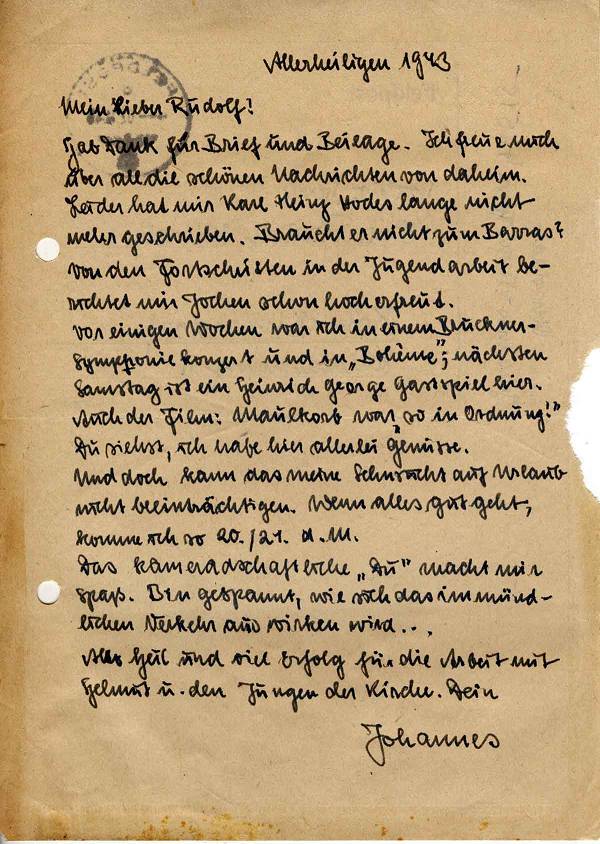 Allerheiligen 1943
Mein Lieber Rudolf!
Hab Dank für Brief und Beilage. Ich freue mich
über all die schönen Nachrichten von daheim.
Leider hat mir Karl Heinz Hodes lange nicht
mehr geschrieben. Braucht er nicht zum Barras?
Von den Fortschritten in der Jugendarbeit be-
richtet mir Jochen schon hocherfreut.
Vor einigen Wochen war ich in einem Bruckner-
Symphoniekonzert und in „Bohème"; nächsten
Samstag ist ein Heinrich George Gastspiel hier.
Auch der Film: Maulkorb war „so in Ordnung!"
Du siehst, ich habe hier allerlei Genüsse.
Und doch kann das meine Sehnsucht auf Urlaub
nicht beeinträchtigen. Wenn alles gut geht,
komme ich so 20./21. d.M.
Das kameradschaftliche „Du" macht mir
Spaß. Bin gespannt, wie sich das im münd-
lichen Verkehr auswirken wird...
Alles Heil und viel Erfolg für die Arbeit mit
Helmut u. den Jungen der Kirche. Dein
Johannes